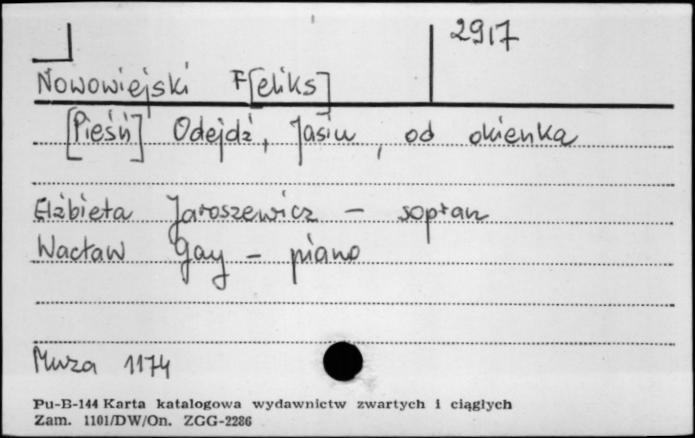 2917
Nowowiejski F[eliks]
[Pieśń] Odejdź, Jasiu, od okienka
Elżbieta Jaroszewicz – sopran
Wacław Gay – piano
Muza 1174
Pu-B-144 Karta katalogowa wydawnictw zwartych i ciągłych
Zam. 1101/DW/On. ZGG-2286